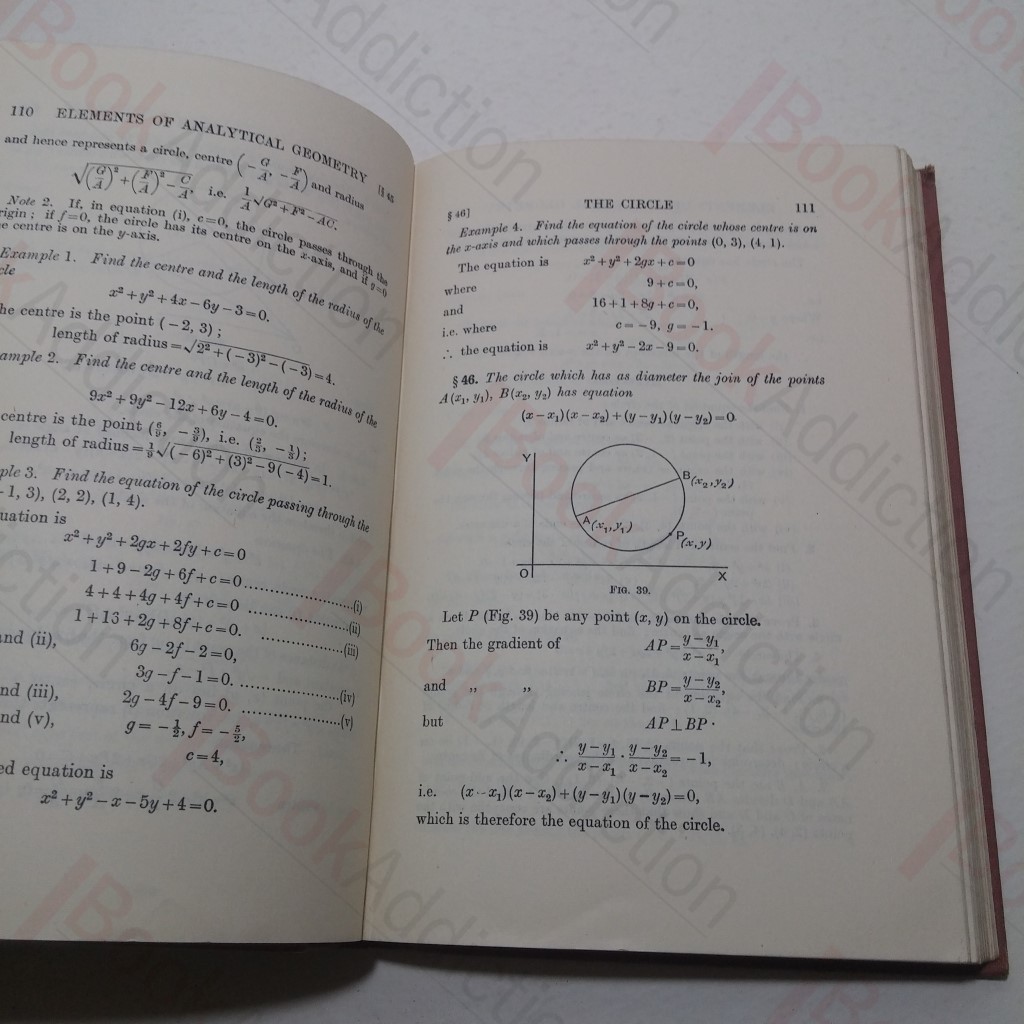 110 ELEMENTS OF ANALYTICAL GEOMETRY [§ 45
and hence represents a circle, centre (−G/A, −F/A) and radius
√((G/A)²+(F/A)²−C/A), i.e. 1/A √G²+F²−AC.
Note 2. If, in equation (i), c=0, the circle passes through the
rigin; if f=0, the circle has its centre on the x-axis, and if g=0
e centre is on the y-axis.
Example 1. Find the centre and the length of the radius of the
cle
x²+y²+4x−6y−3=0.
he centre is the point (−2, 3);
length of radius=√2²+(−3)²−(−3)=4.
ample 2. Find the centre and the length of the radius of the
9x²+9y²−12x+6y−4=0.
centre is the point (6/9, −3/9), i.e. (2/3, −1/3);
length of radius=1/9√(−6)²+(3)²−9(−4)=1.
ple 3. Find the equation of the circle passing through the
−1, 3), (2, 2), (1, 4).
uation is
x²+y²+2gx+2fy+c=0
1+9−2g+6f+c=0 ....................(i)
4+4+4g+4f+c=0 ....................(ii)
1+13+2g+8f+c=0. ..................(iii)
and (ii), 6g−2f−2=0,
3g−f−1=0. ....................(iv)
nd (iii), 2g−4f−9=0. ....................(v)
nd (v), g=−1/2, f=−5/2,
c=4,
ed equation is
x²+y²−x−5y+4=0.
§ 46] THE CIRCLE 111
Example 4. Find the equation of the circle whose centre is on
the x-axis and which passes through the points (0, 3), (4, 1).
The equation is x²+y²+2gx+c=0
where 9+c=0,
and 16+1+8g+c=0,
i.e. where c=−9, g=−1.
∴ the equation is x²+y²−2x−9=0.
§ 46. The circle which has as diameter the join of the points
A(x₁, y₁), B(x₂, y₂) has equation
(x−x₁)(x−x₂)+(y−y₁)(y−y₂)=0.
Y
B(x₂,y₂)
A(x₁,y₁)
P(x,y)
O X
FIG. 39.
Let P (Fig. 39) be any point (x, y) on the circle.
Then the gradient of AP=y−y₁/x−x₁,
and ,, ,, BP=y−y₂/x−x₂,
but AP⊥BP.
∴ y−y₁/x−x₁ . y−y₂/x−x₂=−1,
i.e. (x−x₁)(x−x₂)+(y−y₁)(y−y₂)=0,
which is therefore the equation of the circle.
BookAddiction